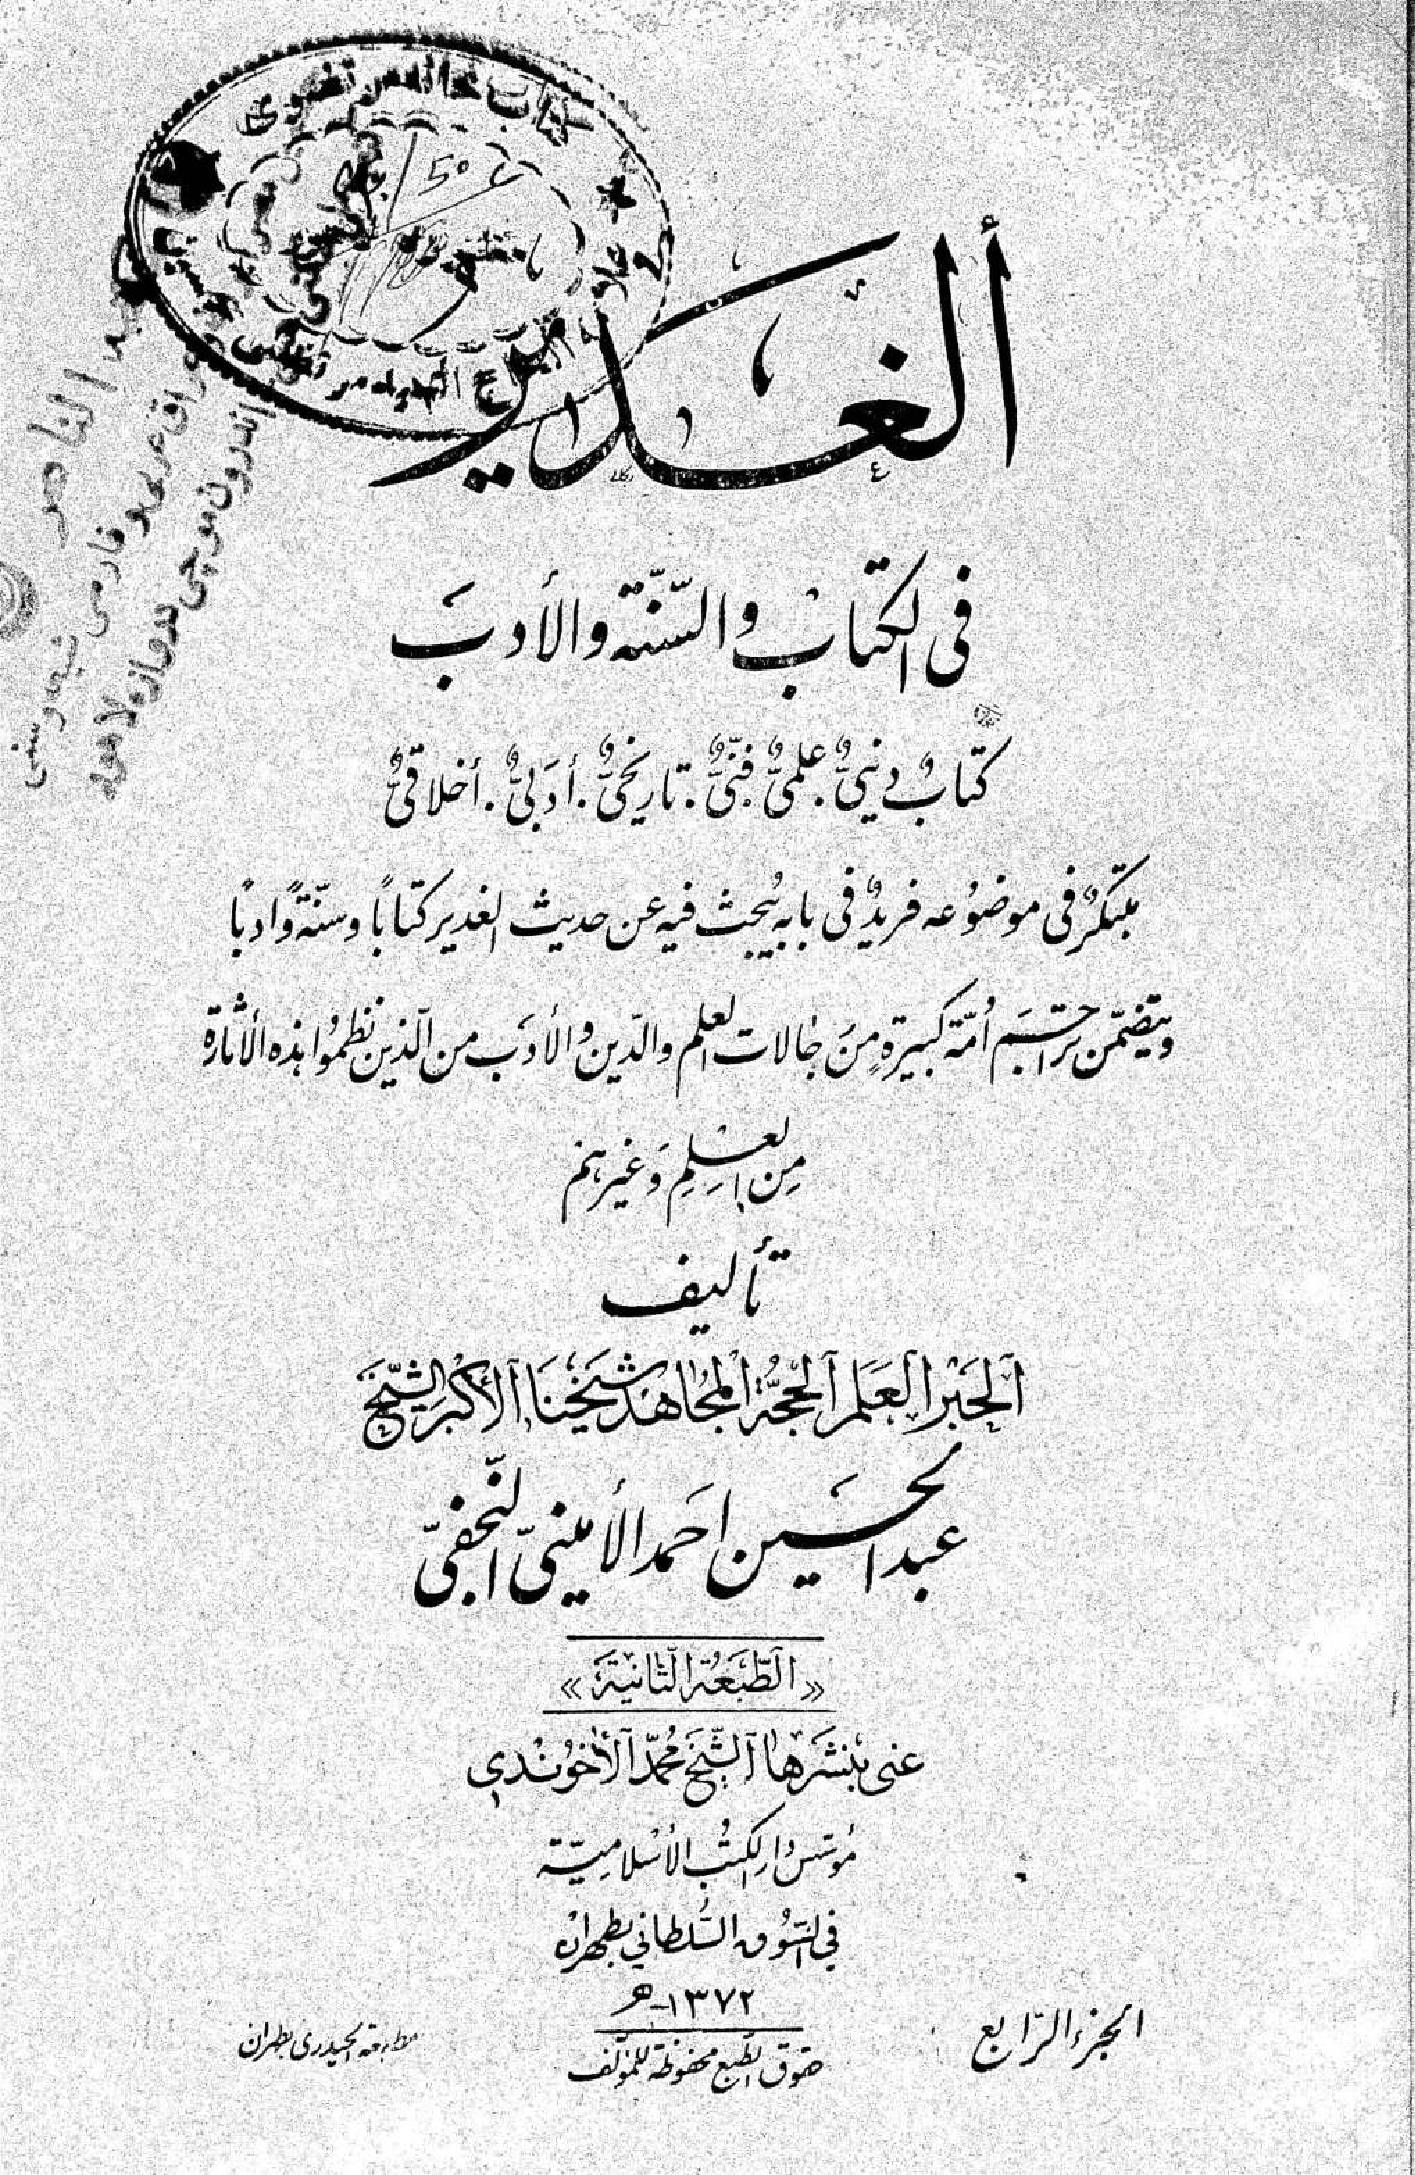 ألغدير
في الكتاب والسّنّة والأدب
كتابٌ دينيٌّ . علميٌّ . فنّيٌّ . تاريخيٌّ . أدَبيٌّ . أخلاقيٌّ
مبتكرٌ في موضوعه فريدٌ في بابه يُبحث فيه عن حديث الغدير كتابًا وسنّةً وادبًا
ويتضمّن تراجم أمّة كبيرة من رجالات العلم والدّين والأدب من الّذين نظموا هذه الأثارة
من العلم وغيرهم
تأليف
الحَبر العَلَم الحجّة المجاهد شيخنا الأكبر الشّيخ
عبد الحسين احمد الأمينيّ النّجفيّ
«الطّبعة الثانية»
عنى بنشرها الشّيخ محمّد الآخوندي
مؤسّس دار الكتب الأسلاميّة
في السّوق السّلطاني بطهران
١٣٧٢-هـ
الجزء الرّابع
حقوق الطّبع محفوظة للمؤلّف
مطبعة الحيدرى بطهران
الناصر
عراق عربى و فارسى شيعه و سنى
اندرون موچى دروازه لاهور